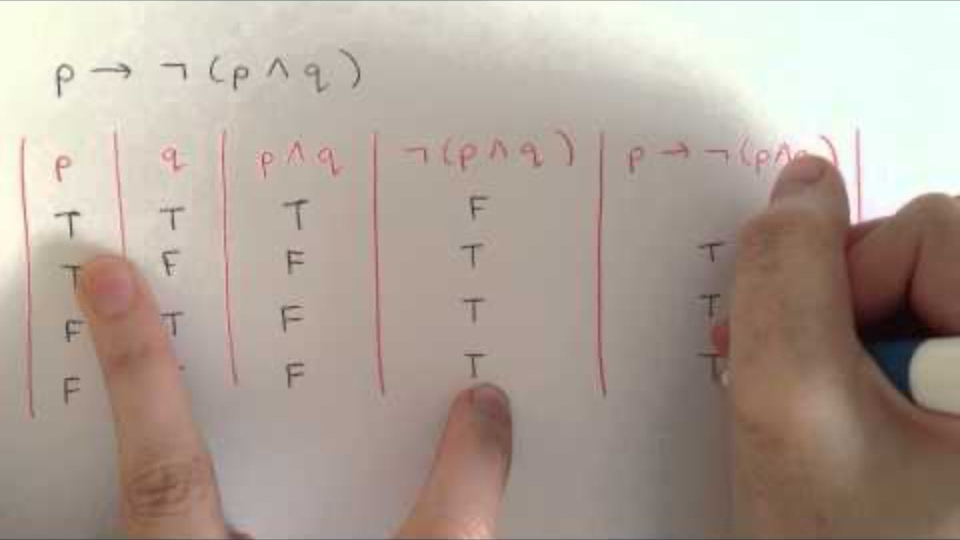 p → ¬(p ∧ q)
p q p ∧ q ¬(p ∧ q) p → ¬(p ∧ q)
T T T F
T F F T T
F T F T T
F F T T